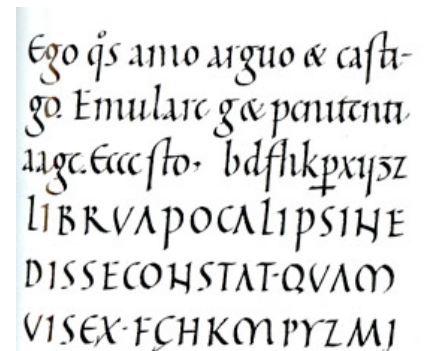 Ego q̊s amo arguo & caſti-
go. Emulare g& penitenti
aage. Ecce ſto, bdfhkꝑxyʒz
LIBRVAPOCALIPSINE
DISSECONSTAT·QVAM
VISEX·FGHKMPYZMJ